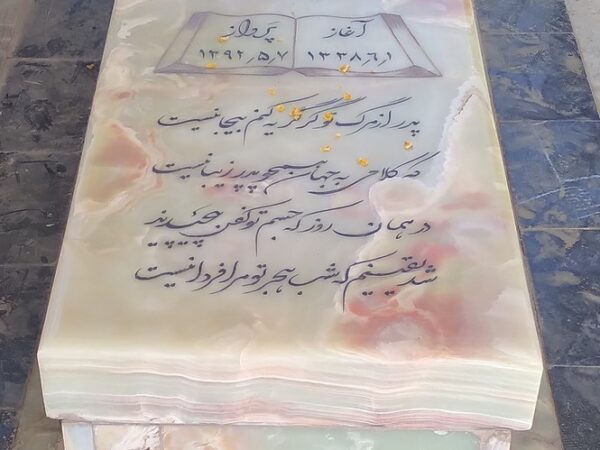 آغاز
۱۳۳۸٫۶٫۱
پرواز
۱۳۹۲٫۵٫۷
پدر از مرگ تو گر گریه کنم بیجا نیست
که کلامی به جهان همچو پدر زیبا نیست
در همان روز که جسم تو کفن پیچیدند
شد یقینم که شب هجر تو را فردا نیست